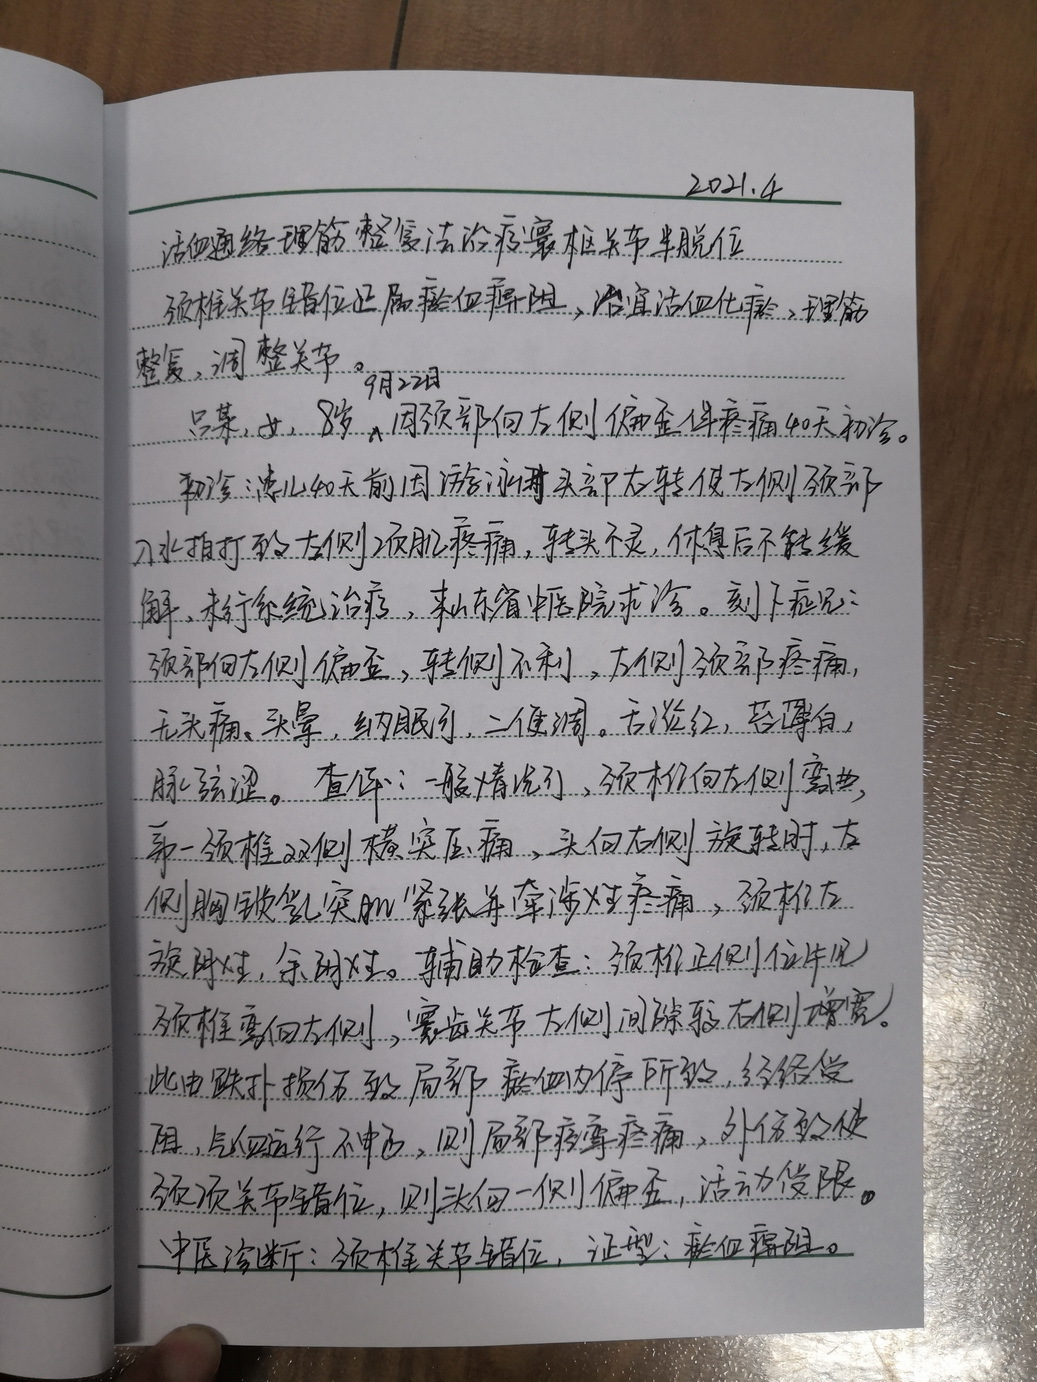 2021.4
活血通络理筋整复法治疗寰枢关节半脱位
颈椎关节错位还属瘀血痹阻，治宜活血化瘀、理筋
整复、调整关节。
9月22日
吕某，女，8岁，因颈部向左侧偏歪伴疼痛40天初诊。
初诊：患儿40天前因游泳时头部右转使左侧颈部
入水拍打致左侧颈肌疼痛，转头不灵，休息后不缓
解，未行系统治疗，来山东省中医院求诊。刻下症见：
颈部向左侧偏歪，转侧不利，左侧颈部疼痛，
无头痛、头晕，纳眠可，二便调。舌淡红，苔薄白，
脉弦涩。查体：一般情况可，颈椎向左侧弯曲，
第一颈椎双侧横突压痛，头向右侧旋转时，左
侧胸锁乳突肌紧张并牵涉性疼痛，颈椎左
旋阴性，余阴性。辅助检查：颈椎正侧位片见
颈椎弯向左侧，寰齿关节左侧间隙较右侧增宽。
此由跌扑损伤致局部瘀血内停所致，经络受
阻，气血运行不畅，则局部痉挛疼痛，外伤致使
颈项关节错位，则头向一侧偏歪，活动受限。
中医诊断：颈椎关节错位，证型：瘀血痹阻。